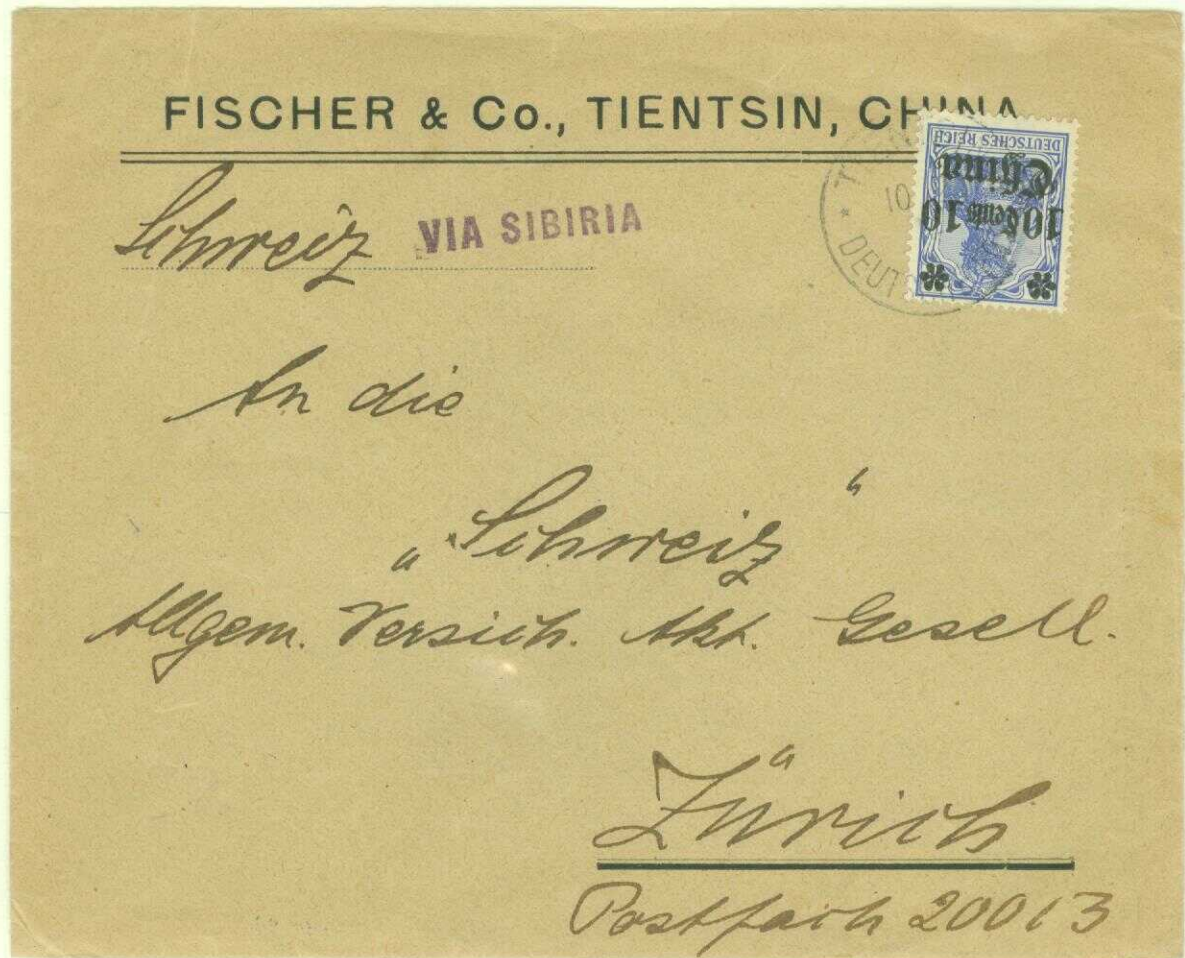 FISCHER & Co., TIENTSIN, CHINA
Schweiz VIA SIBIRIA
DEUTSCHES REICH
China
10 Cents 10
10
An die
„Schweiz"
Allgem. Versich. Akt. Gesell.
Zürich
Postfach 20013